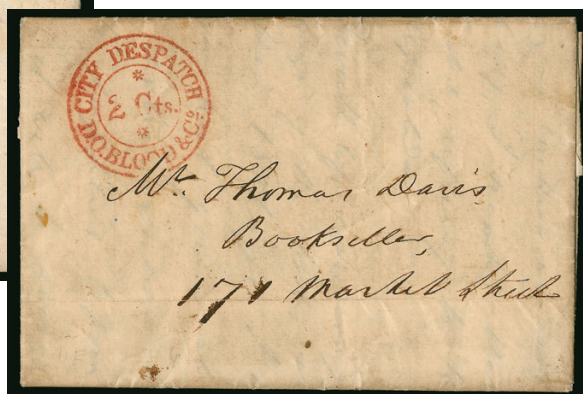 CITY DESPATCH
2 Cts.
D.O. BLOOD & Co.
Mr. Thomas Davis
Bookseller,
171 Market Street